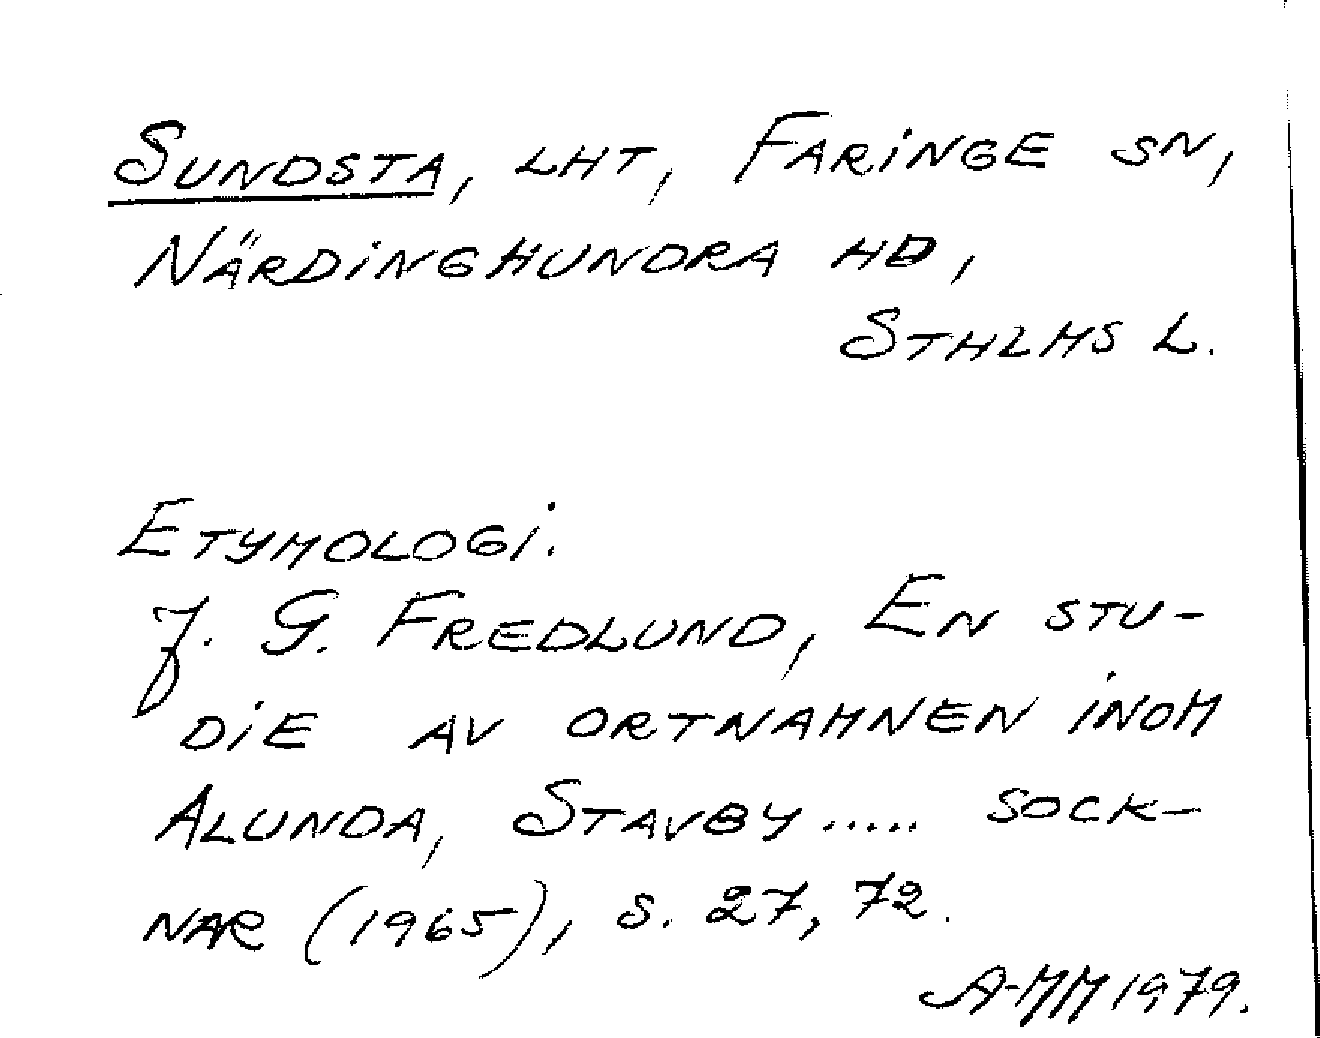 SUNDSTA, LHT, FARINGE SN,
NÄRDINGHUNDRA HD,
STHLMS L.
ETYMOLOGI.
J. G. FREDLUND, EN STU-
DIE AV ORTNAMNEN INOM
ALUNDA, STAVBY ..... SOCK-
NAR (1965), S. 27, 72.
A-MM 1979.